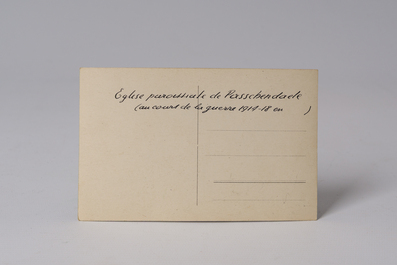 Eglise paroissiale de Passchendaele
(au cours de la guerre 1914-18 en )